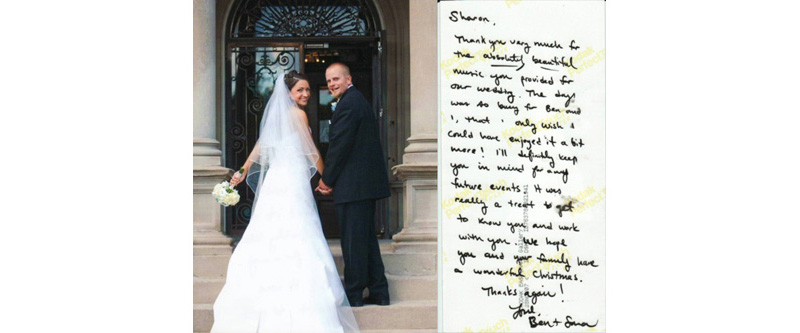 Sharon,
Thank you very much for
the absolutely beautiful
music you provided for
our wedding. The day
was so busy for Ben and
I, that I only wish I
could have enjoyed it a bit
more! I'll definitely keep
you in mind for any
future events. It was
really a treat to get
to know you and work
with you. We hope
you and your family have
a wonderful Christmas.
Thanks again!
Love,
Ben +